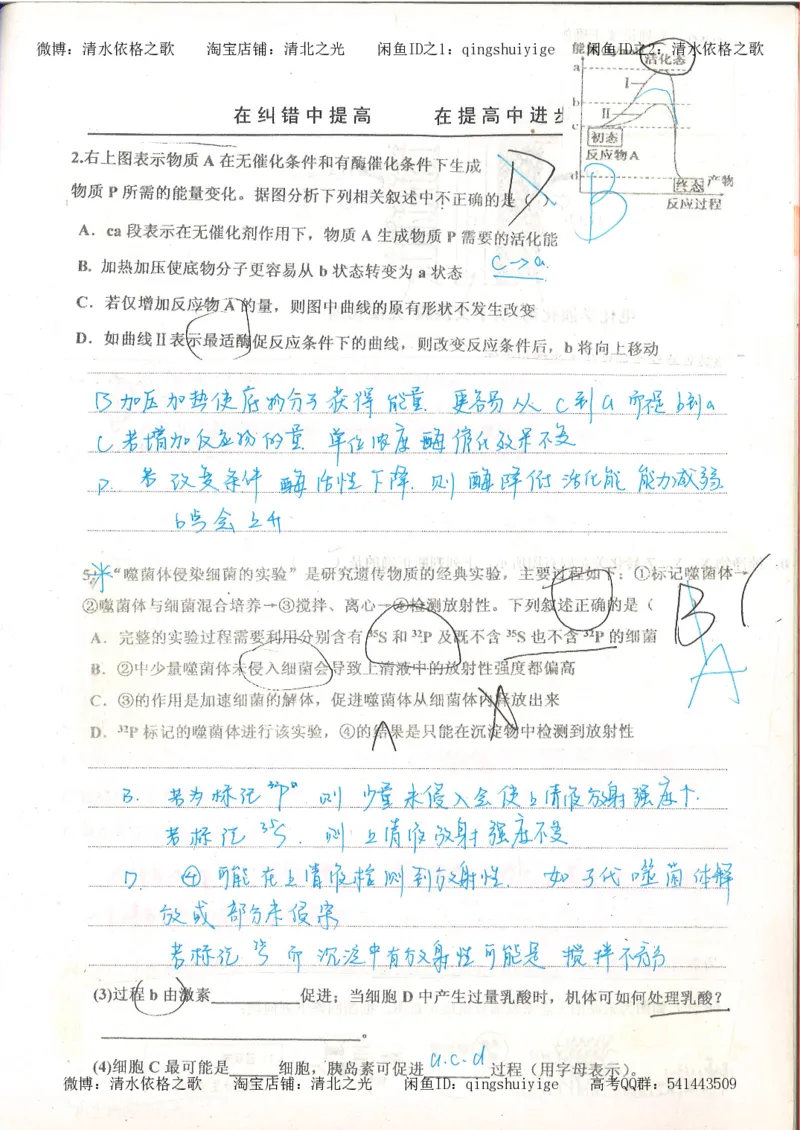 微博：清水依格之歌　　淘宝店铺：清北之光　　闲鱼ID之1：qingshuiyige　　闲鱼ID之2：清水依格之歌
在纠错中提高　　在提高中进步
能
活化态
a
I
b
II
c
初态
反应物A
d
终态 产物
反应过程
2.右上图表示物质 A 在无催化条件和有酶催化条件下生成
物质 P 所需的能量变化。据图分析下列相关叙述中不正确的是（ ）
D
B
A．ca 段表示在无催化剂作用下，物质 A 生成物质 P 需要的活化能
B. 加热加压使底物分子更容易从 b 状态转变为 a 状态
c→a.
C．若仅增加反应物 A 的量，则图中曲线的原有形状不发生改变
D．如曲线Ⅱ表示最适酶促反应条件下的曲线，则改变反应条件后，b 将向上移动
B 加压加热使底物分子获得能量. 更容易从 c到a 而不是 b到a
C 若增加反应物的量 单位浓度 酶催化效果不变
D. 若改变条件 酶活性下降. 则酶降低活化能能力减弱
b点会上升
5. 米 “噬菌体侵染细菌的实验”是研究遗传物质的经典实验，主要过程如下：①标记噬菌体→
②噬菌体与细菌混合培养→③搅拌、离心→④检测放射性。下列叙述正确的是（
B
A
A．完整的实验过程需要利用分别含有 ³⁵S 和 ³²P 及既不含 ³⁵S 也不含 ³²P 的细菌
B．②中少量噬菌体未侵入细菌会导致上清液中的放射性强度都偏高
C．③的作用是加速细菌的解体，促进噬菌体从细菌体内释放出来
D．³²P 标记的噬菌体进行该实验，④的结果是只能在沉淀物中检测到放射性
B. 若为标记³²P 则 少量未侵入会使上清液放射强度↑.
若标记 ³⁵S. 则上清液放射强度不变
D. ④ 可能在上清液检测到放射性. 如子代噬菌体释
放或部分未侵染
若标记 ³⁵S 而 沉淀中有放射性可能是 搅拌不充分
(3)过程 b 由激素__________促进；当细胞 D 中产生过量乳酸时，机体可如何处理乳酸？
______________________________。
(4)细胞 C 最可能是______细胞，胰岛素可促进 a.c.d 过程（用字母表示）。
微博：清水依格之歌　　淘宝店铺：清北之光　　闲鱼ID：qingshuiyige　　高考QQ群：541443509